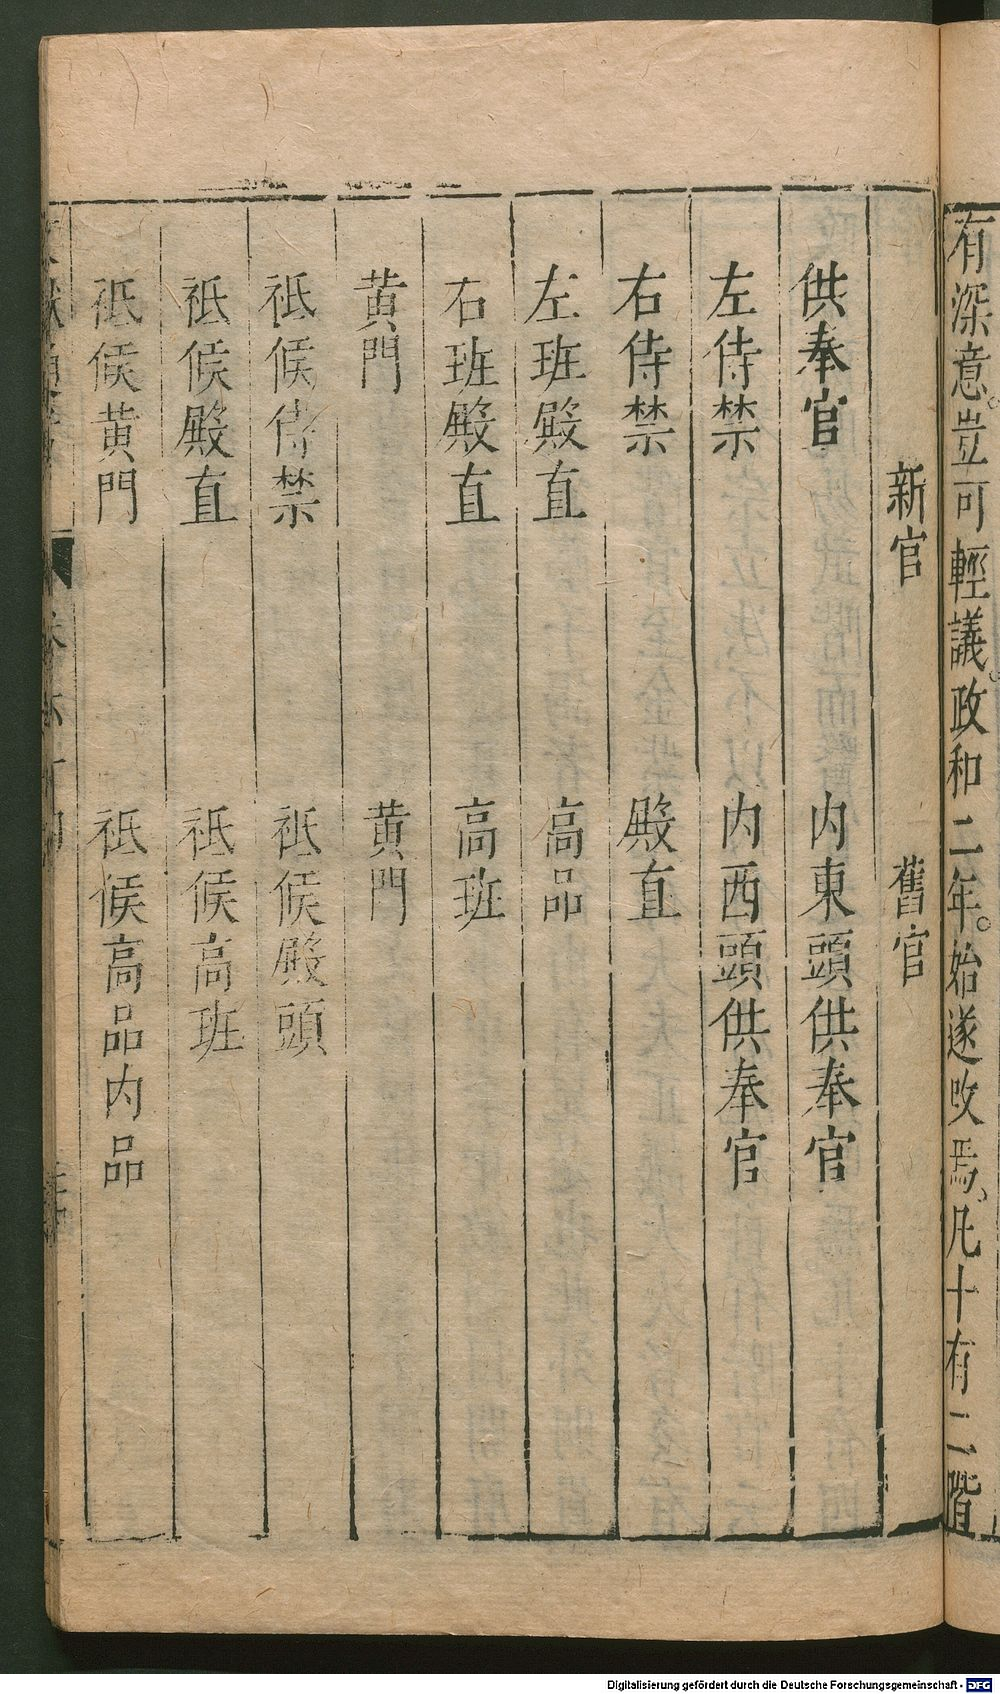 有深意。豈可輕議。政和二年。始遂改焉、凡十有二階
新官 舊官
供奉官 内東頭供奉官
左侍禁 内西頭供奉官
右侍禁 殿直
左班殿直 高品
右班殿直 高班
黄門 黄門
祗候侍禁 祗候殿頭
祗候殿直 祗候高班
祗候黄門 祗候高品内品
Digitalisierung gefördert durch die Deutsche Forschungsgemeinschaft - DFG